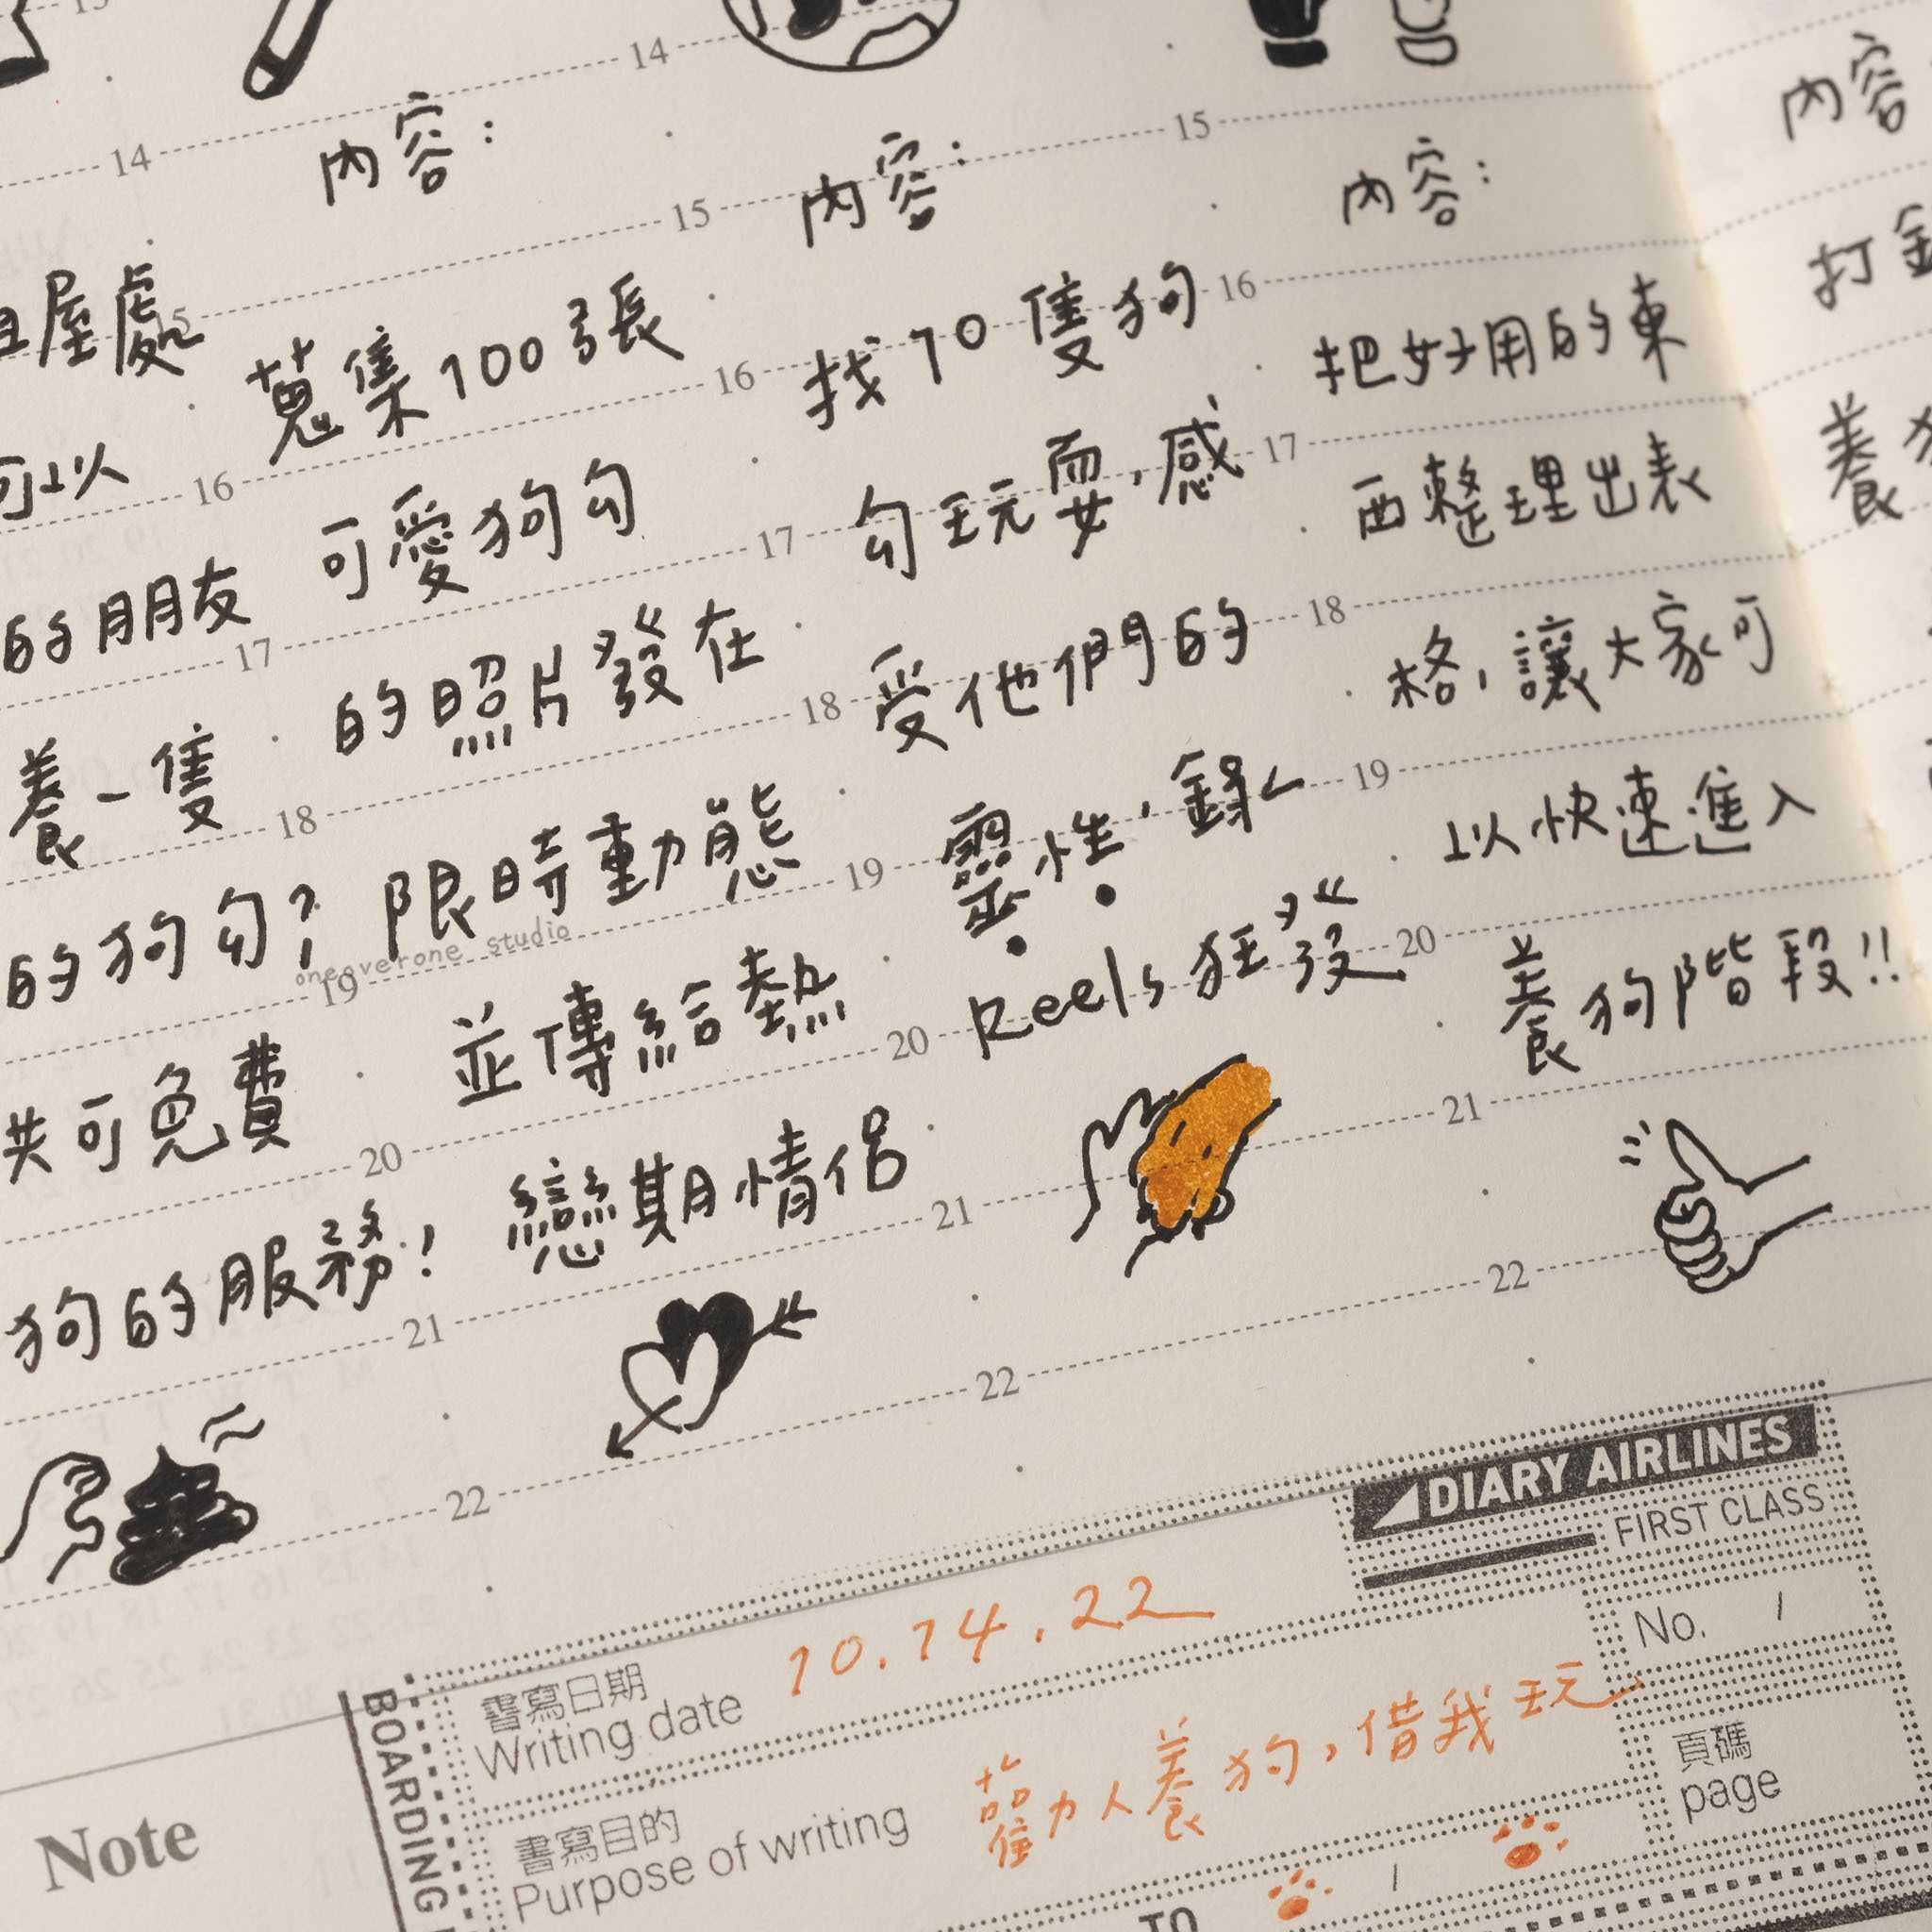 內容：
蒐集100張
可愛狗勾
的照片發在
限時動態
並傳給熱
戀期情侶
內容：
找10隻狗
勾玩耍，感
受他們的
靈性，錄
Reels狂發
內容：
把好用的東
西整理出表
格，讓大家可
以快速進入
養狗階段!!
屋處
可以
的朋友
養一隻
的狗勾?
共可免費
狗的服務!
內容
打
養
14
15
16
17
18
19
20
21
22
14
15
16
17
18
19
20
21
22
15
16
17
18
19
20
21
22
oneoverone studio
DIARY AIRLINES
FIRST CLASS
BOARDING
書寫日期
Writing date
10.14.22
書寫目的
Purpose of writing
勸人養狗，借我玩
No. 1
頁碼
page
TO
Note